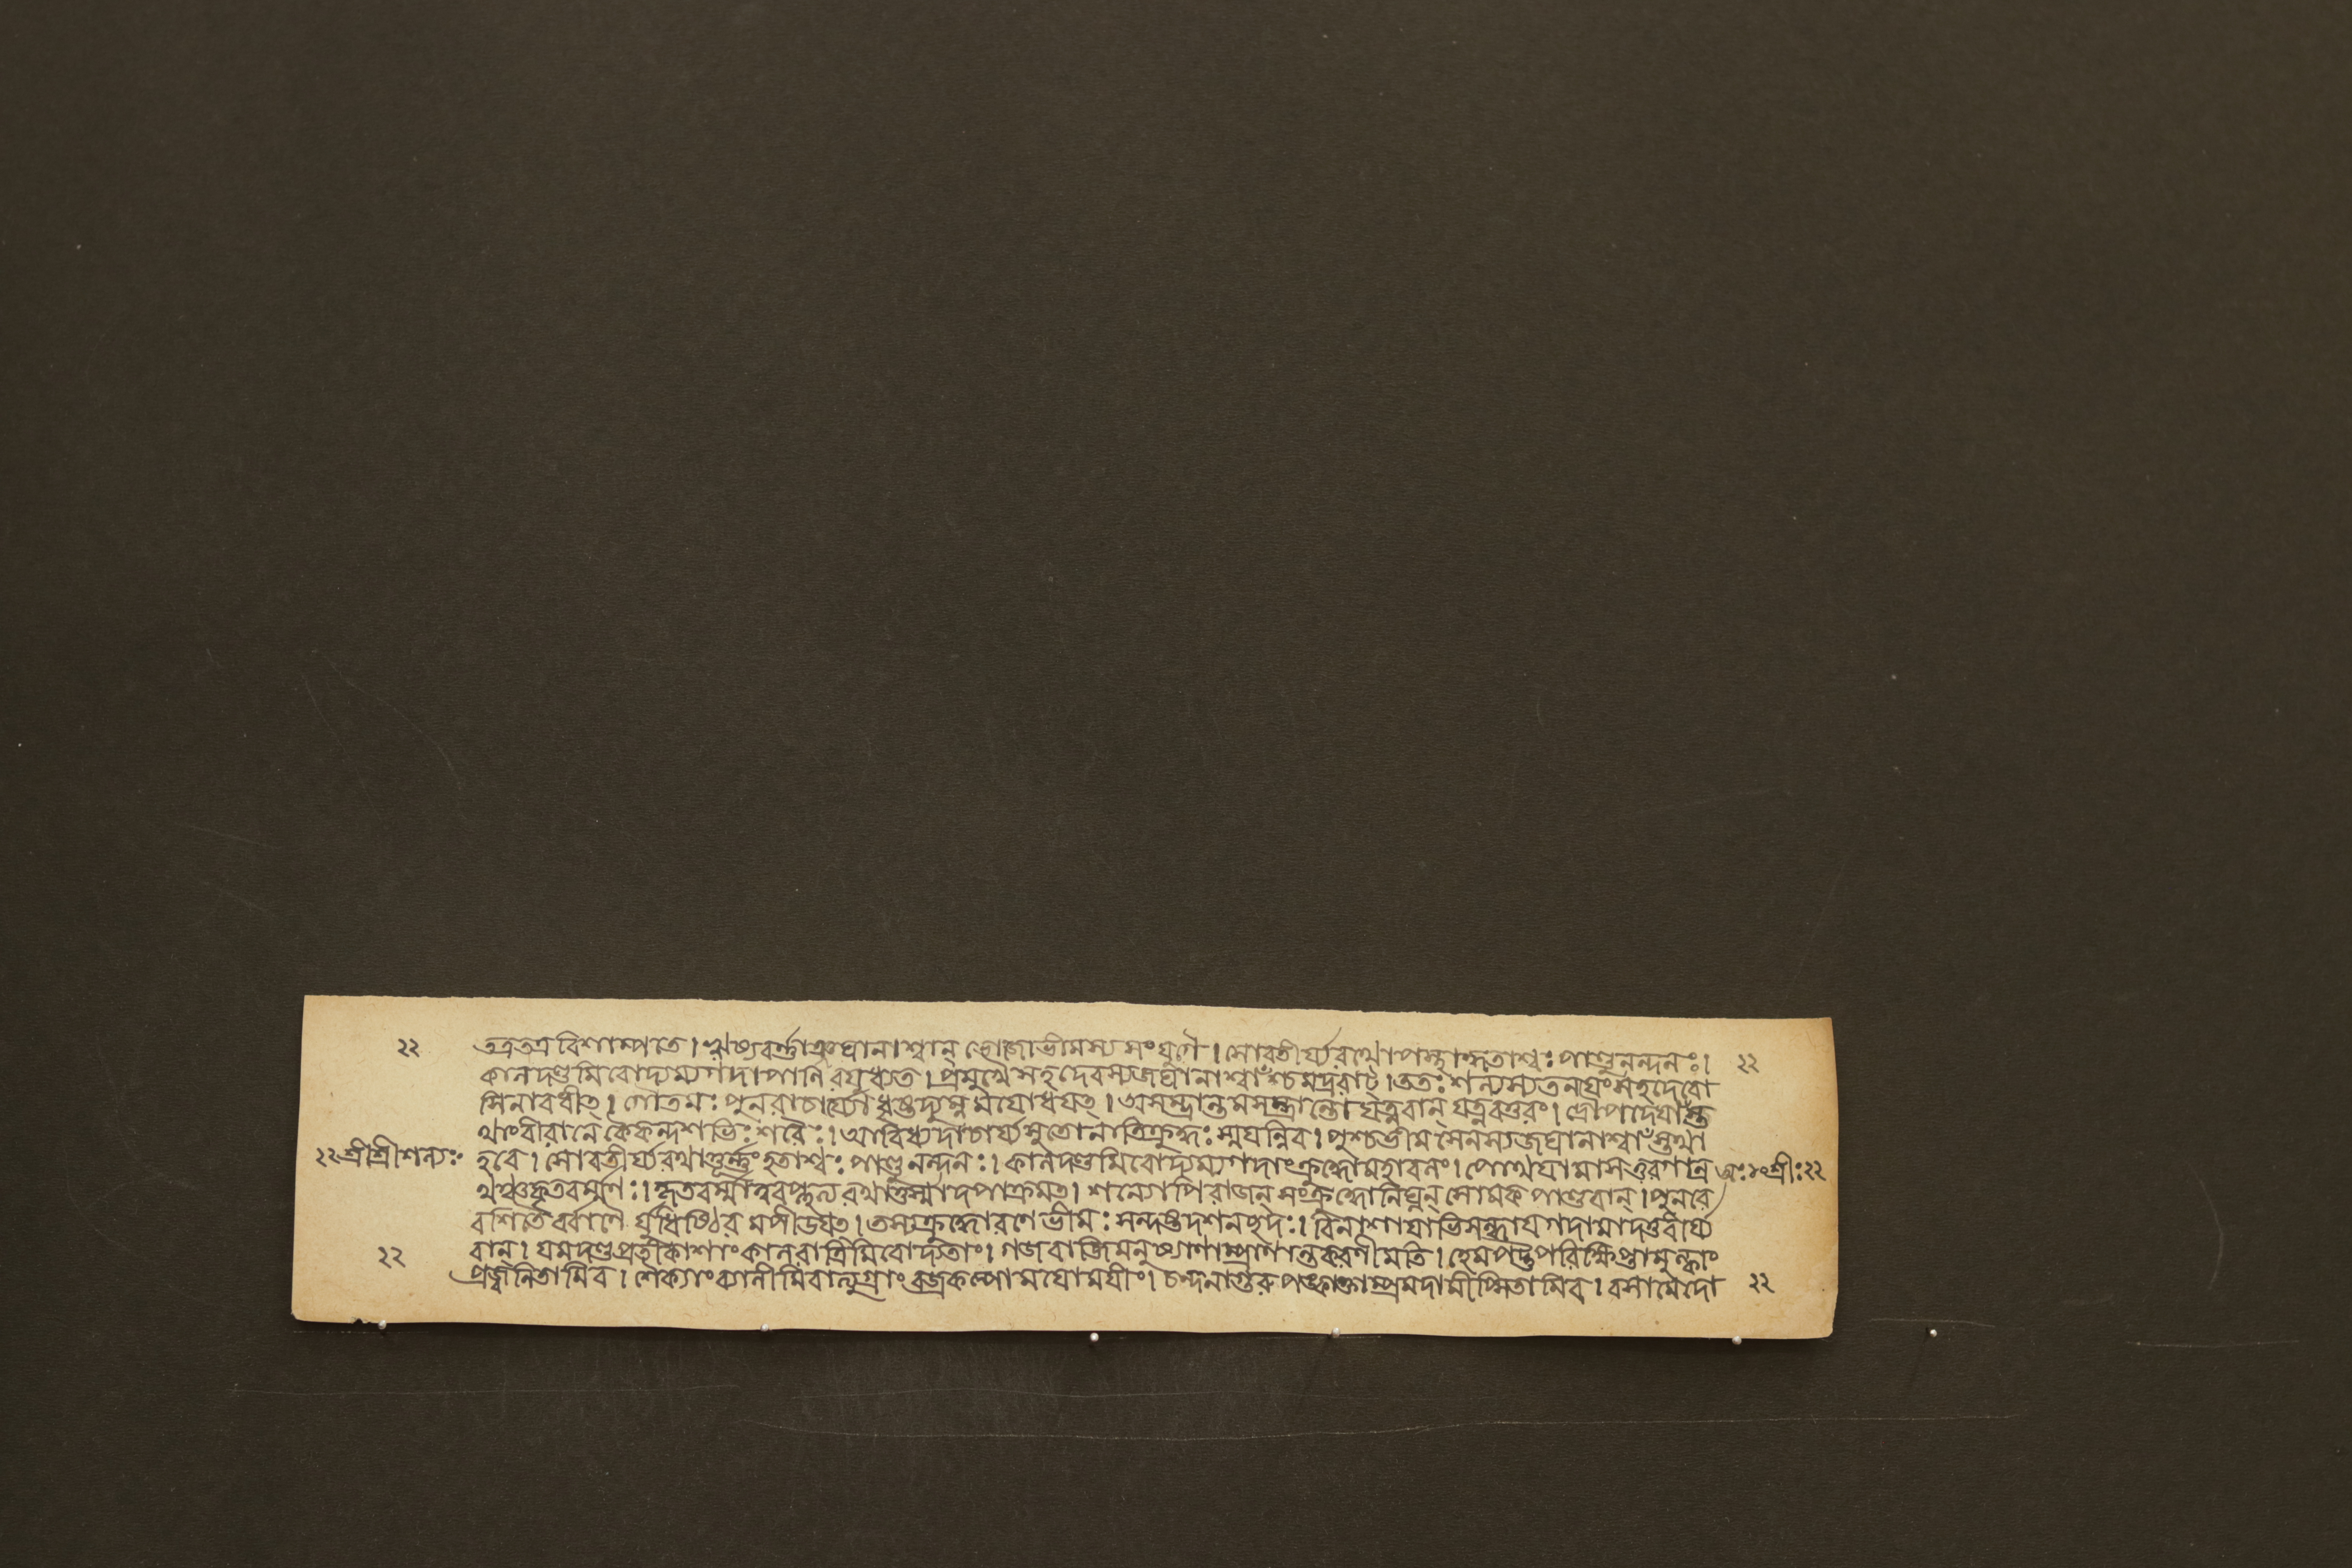 ২২ তত্রতত্র বিশাম্পতে। ঋষ্যবর্ণ্ণাঞ্জঘানাশ্বান্ ভোজোভীমস্য সংযুগে। সোবতীর্য্যরথোপস্থাদ্ধতাশ্বঃ পাণ্ডুনন্দনঃ। ২২
কালদণ্ডমিবোদ্যম্যগদাপানিরযুধ্যত। প্রমুখেসহদেবস্যজঘানাশ্বাঁশ্চমদ্ররাট্। ততঃ শল্যস্যতনয়ংসহদেবো
সিনাবধীত্। গৌতমঃ পুনরাচার্য্যো ধৃষ্টদ্যুম্নমযোধয়ত্। অসম্ভ্রান্তমসম্ভ্রান্তো যত্নবান্ যত্নবত্তরং। দ্রৌপদেয়াঁস্ত
থাংবীরানেকৈকন্দশভিঃ শরৈঃ। আবিধ্যদাচার্য্যসুতোনাতিক্রুদ্ধঃ স্ময়ন্নিব। পুনশ্চভীমসেনস্যজঘানাশ্বাঁস্তথা
২২ শ্রীশ্রীশল্যঃ হবে। সোবতীর্য্যরথাত্তূর্ণ্ণংহতাশ্বঃ পাণ্ডুনন্দনঃ। কালদণ্ডমিবোদ্যম্যগদাংক্রুদ্ধোমহাবলঃ। পোথয়ামাসতুরগান্র শ্রীঃ ২২
থঞ্চকৃতবর্ম্মণঃ। কৃতবর্ম্মাত্ববপ্লুত্যরথাত্তস্মাদপাক্রমত্। শল্যোপিরাজন্ সংক্রুদ্ধোনিঘ্নন্ সোমকপাণ্ডবান্। পুনরে
বশিতৈর্বাণৈ র্যুধিষ্ঠিরমপীডয়ত্। তস্যক্রুদ্ধোরণেভীমঃ সন্দষ্টদশনছদঃ। বিনাশায়াভিসন্ধায়গদামাদত্তবীর্য্য
২২ বান্। যমদণ্ডপ্রতীকাশাংকালরাত্রিমিবোদ্যতাং। গজবাজিমনুষ্যাণাম্প্রাণান্তকরণীমতি। হেমপট্টপরিক্ষিপ্তামুল্কাং
প্রজ্বলিতামিব। শৈক্যাংব্যালীমিবাত্যুগ্রাংবজ্রকল্পোময়োময়ীং। চন্দনাগুরুপঙ্কাক্তাম্প্রমদামীপ্সিতামিব। বসামেদো ২২